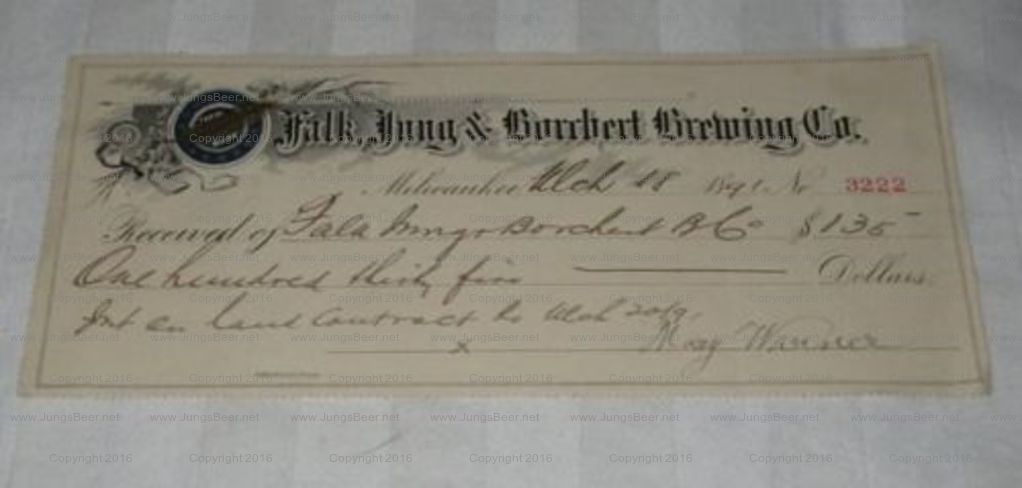 Falk, Jung & Borchert Brewing Co.
Milwaukee Mch 18 1891 No 3222
Received of Falk Jung & Borchert B Co $135-
One hundred thirty five Dollars.
Int on land contract to Mch 20/9
May Warner
www.JungsBeer.net
Copyright 2016